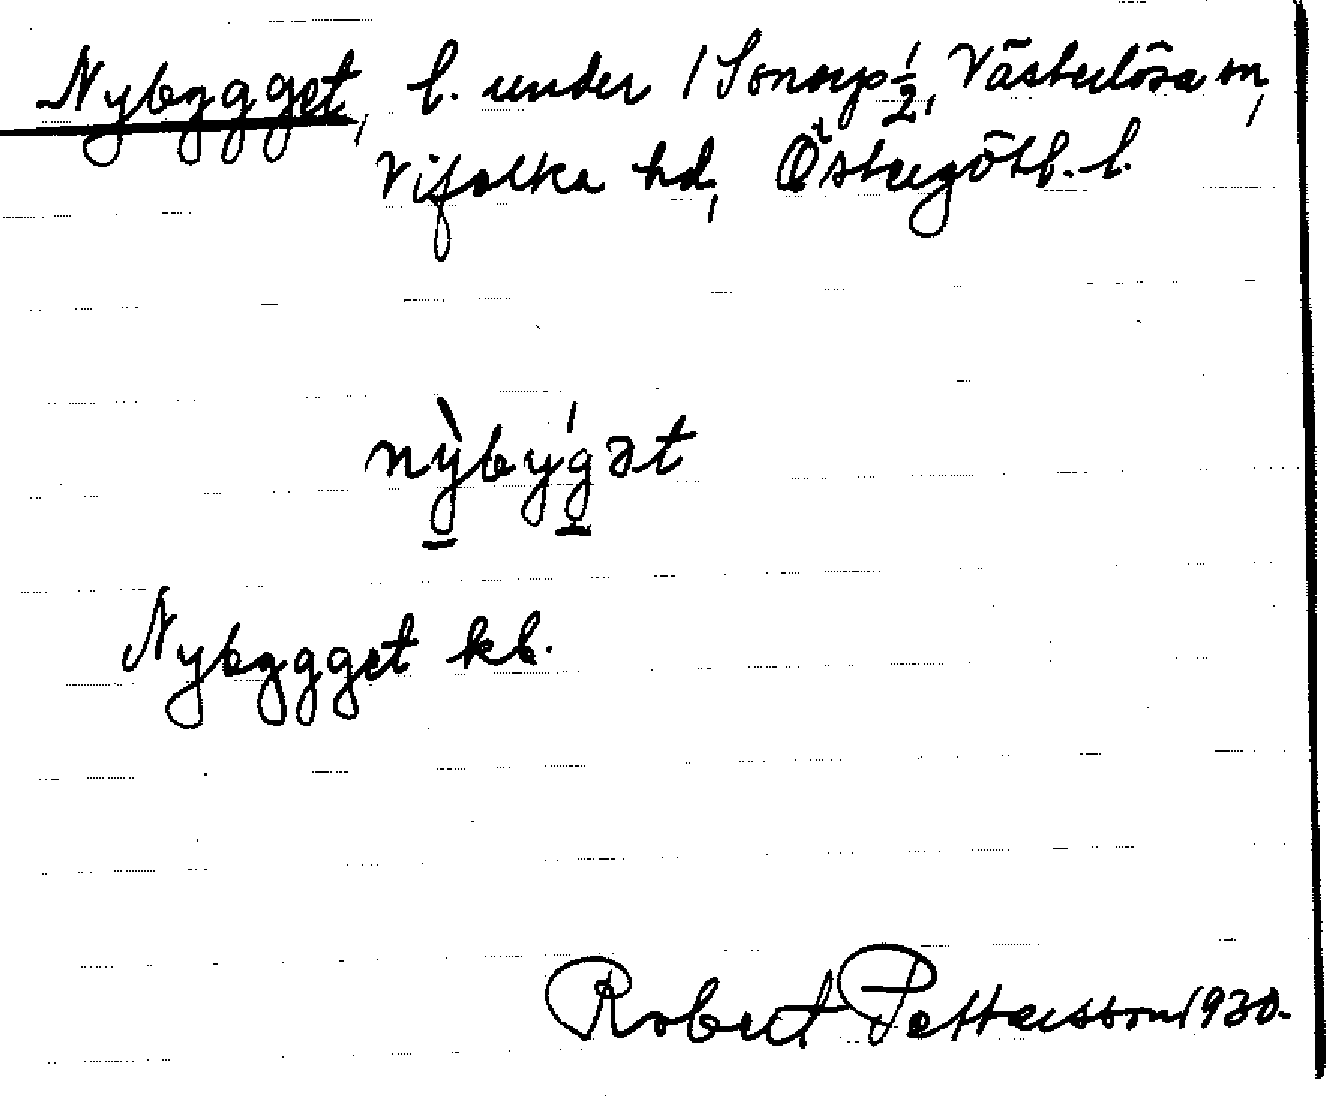 Nybygget, l. under 1 Sonorp 1/2, Västerlösa sn,
Vifolka hd, Östergötl. l.
nỳ̱býg̱ət
Nybygget kb.
Robert Pettersson 1930.